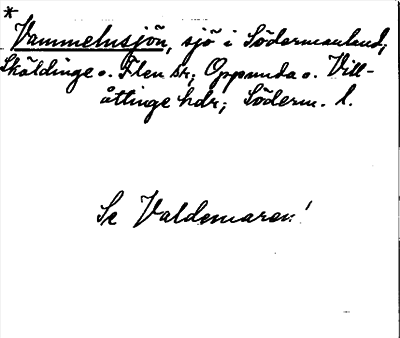 *
Vammelnsjön, sjö i Södermanland;
Sköldinge o. Flen sr; Oppunda o. Vill-
åttinge hdr; Söderm. l.
Se Valdemaren!